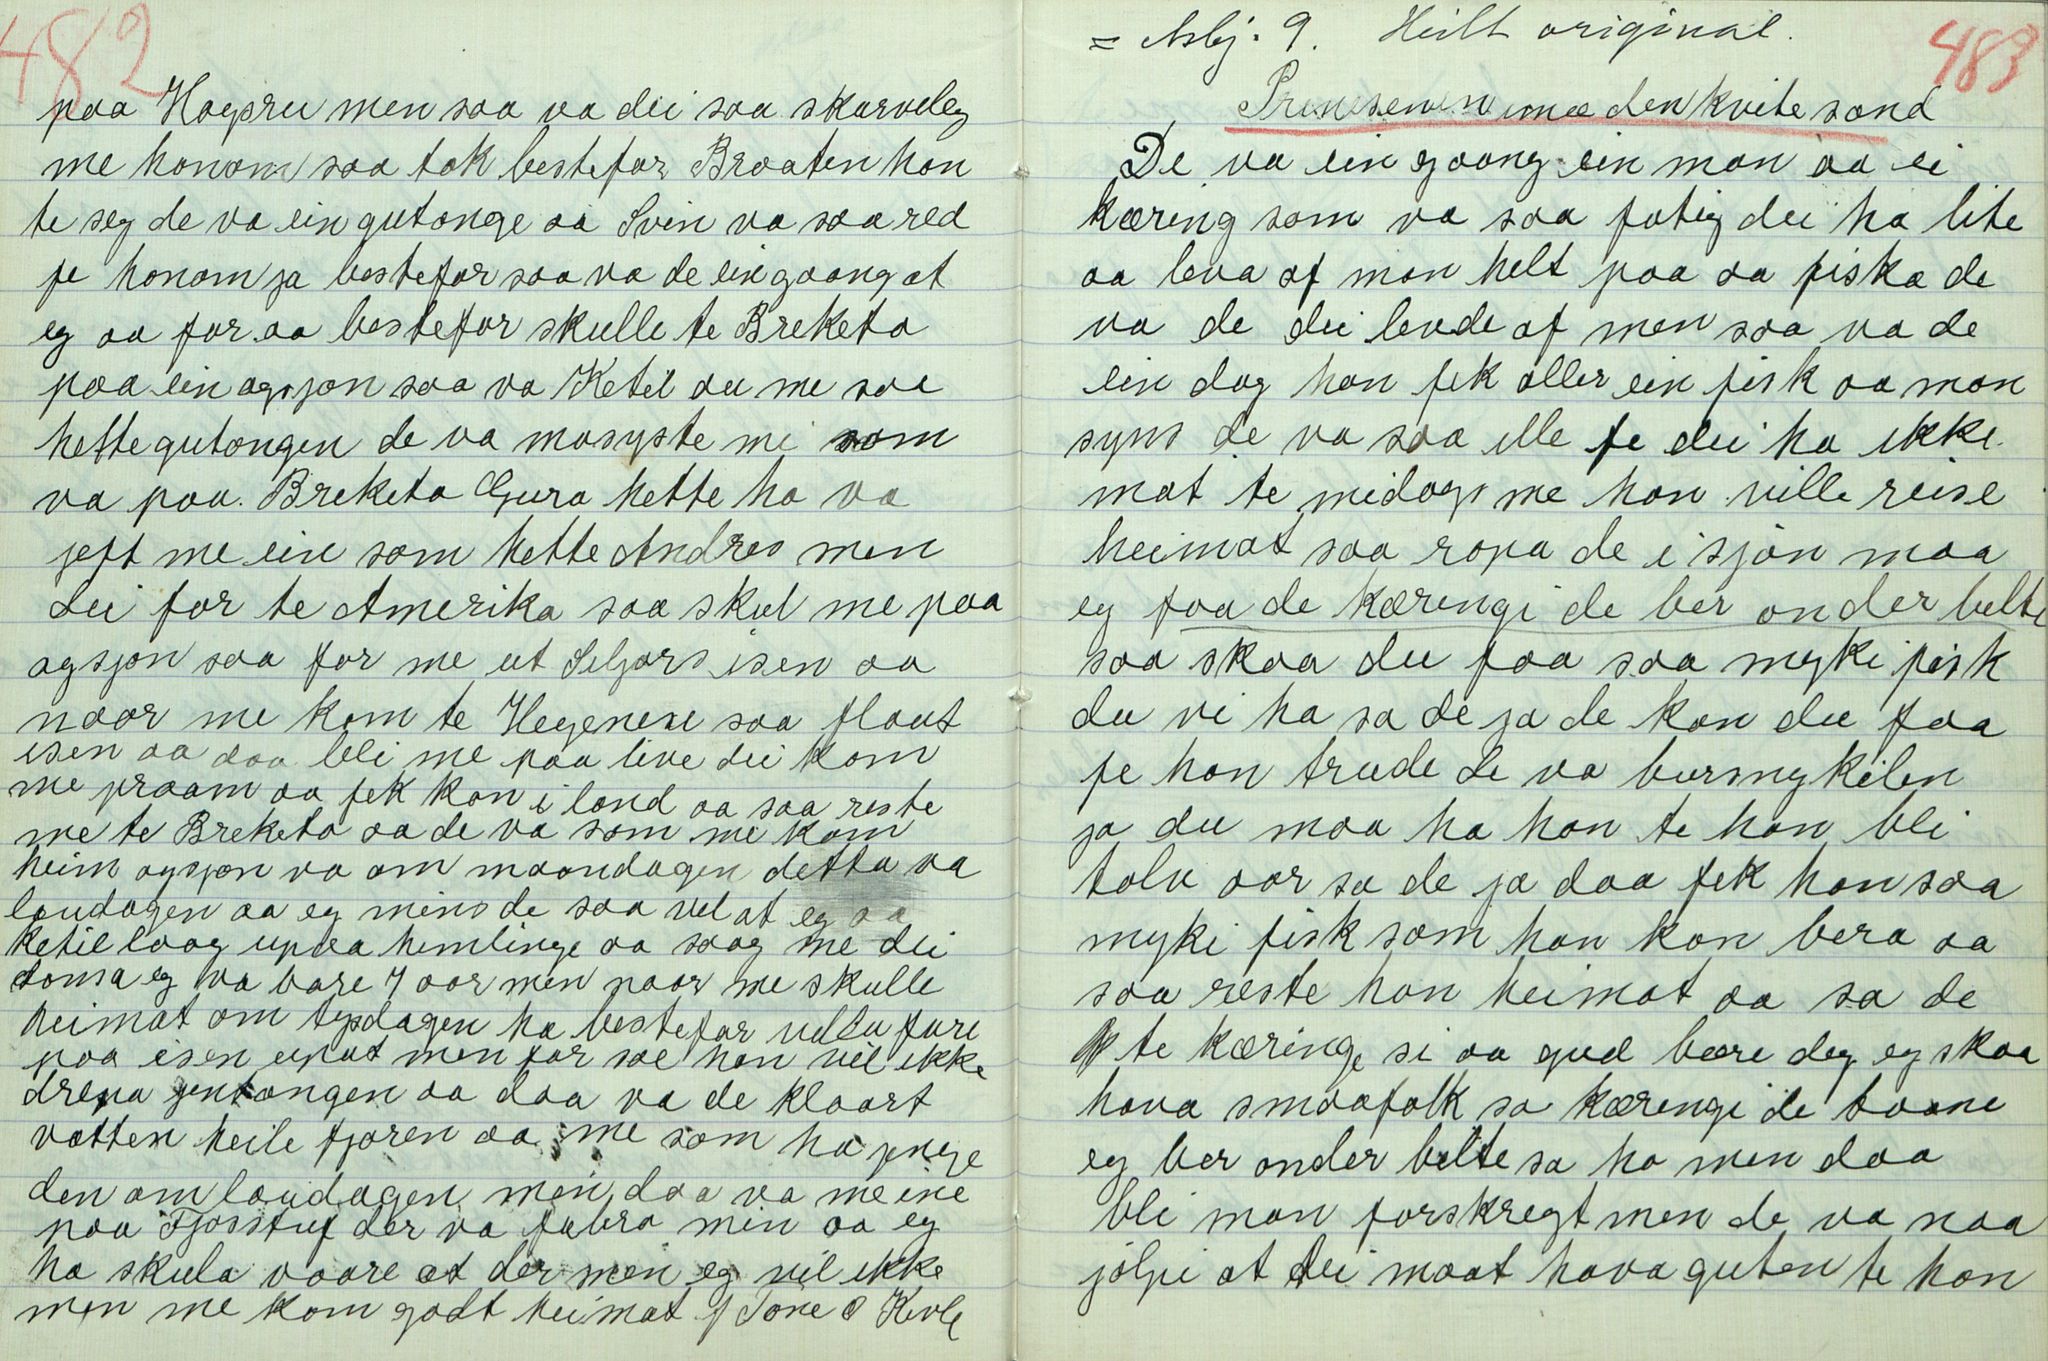 482
paa Hogsru men saa va dei saa skarveleg
me honom saa tok bestefar Braaten han
te seg de va ein gutonge aa Svin va saa red
fe honom ja bestefar saa va de ein gaang at
eg aa far aa bestefar skulle te Breketo
paa ein agsjon saa va Ketil au me soe
hette gutongen de va mosyste mi som
va paa Breketo Gura hette ho va
jeft me ein som hette Andres men
dei for te Amerika saa skul me paa
agsjon saa for me ut Seljorsisen aa
naar me kom te Hegenese saa flaut
isen aa daa blei me paa live dei kom
me praam aa fek kon i land aa saa reste
me te Breketo aa de va som me kom
heim agsjon va om maandagen detta va
laudagen aa eg mins de saa vel at eg aa
Ketil laag uppaa hemlinge aa saag me dei
donsa eg va bare 7 aar men naar me skulle
heimat om tysdagen ha bestefar villa fare
paa isen upat men far sae han vil ikke
drepa jentongen aa daa va de klaart
vatten heile fjoren aa me som ha jenge
den om laudagen men daa va me ine
paa Fjosstuf der va fabro min aa eg
ha skula vaare at der men eg vil ikke
men me kom godt heimat f Tone O Kivle
= Asbj. 9. Heilt original.
483
Prinsessen mæ den kvite sand
De va ein gaang ein man aa ei
kæring som va saa fatig dei ha lite
aa leva af man helt paa aa fiska de
va de dei levde af men saa va de
ein dag han fek aller ein fisk aa man
syns de va saa ille fe dei ha ikke
mat te midags me han ville reise
heimat saa ropa de i sjøn maa
eg faa de kærengi de ber onder belte
saa skaa du faa saa myki fisk
du vi ha sa de ja de kan du faa
fe han trude de va bursnykelen
ja du maa ha han te han bli
tolv aar sa de ja daa fek han saa
myki fisk som han kan bera aa
saa reste han heimat aa sa de
te kæringe si aa gud bære deg eg skaa
hava smaafolk sa kærengi de baane
eg ber onder belte sa ho men daa
bli man forskregt men de va naa
jolpi at dei maat hava guten te han